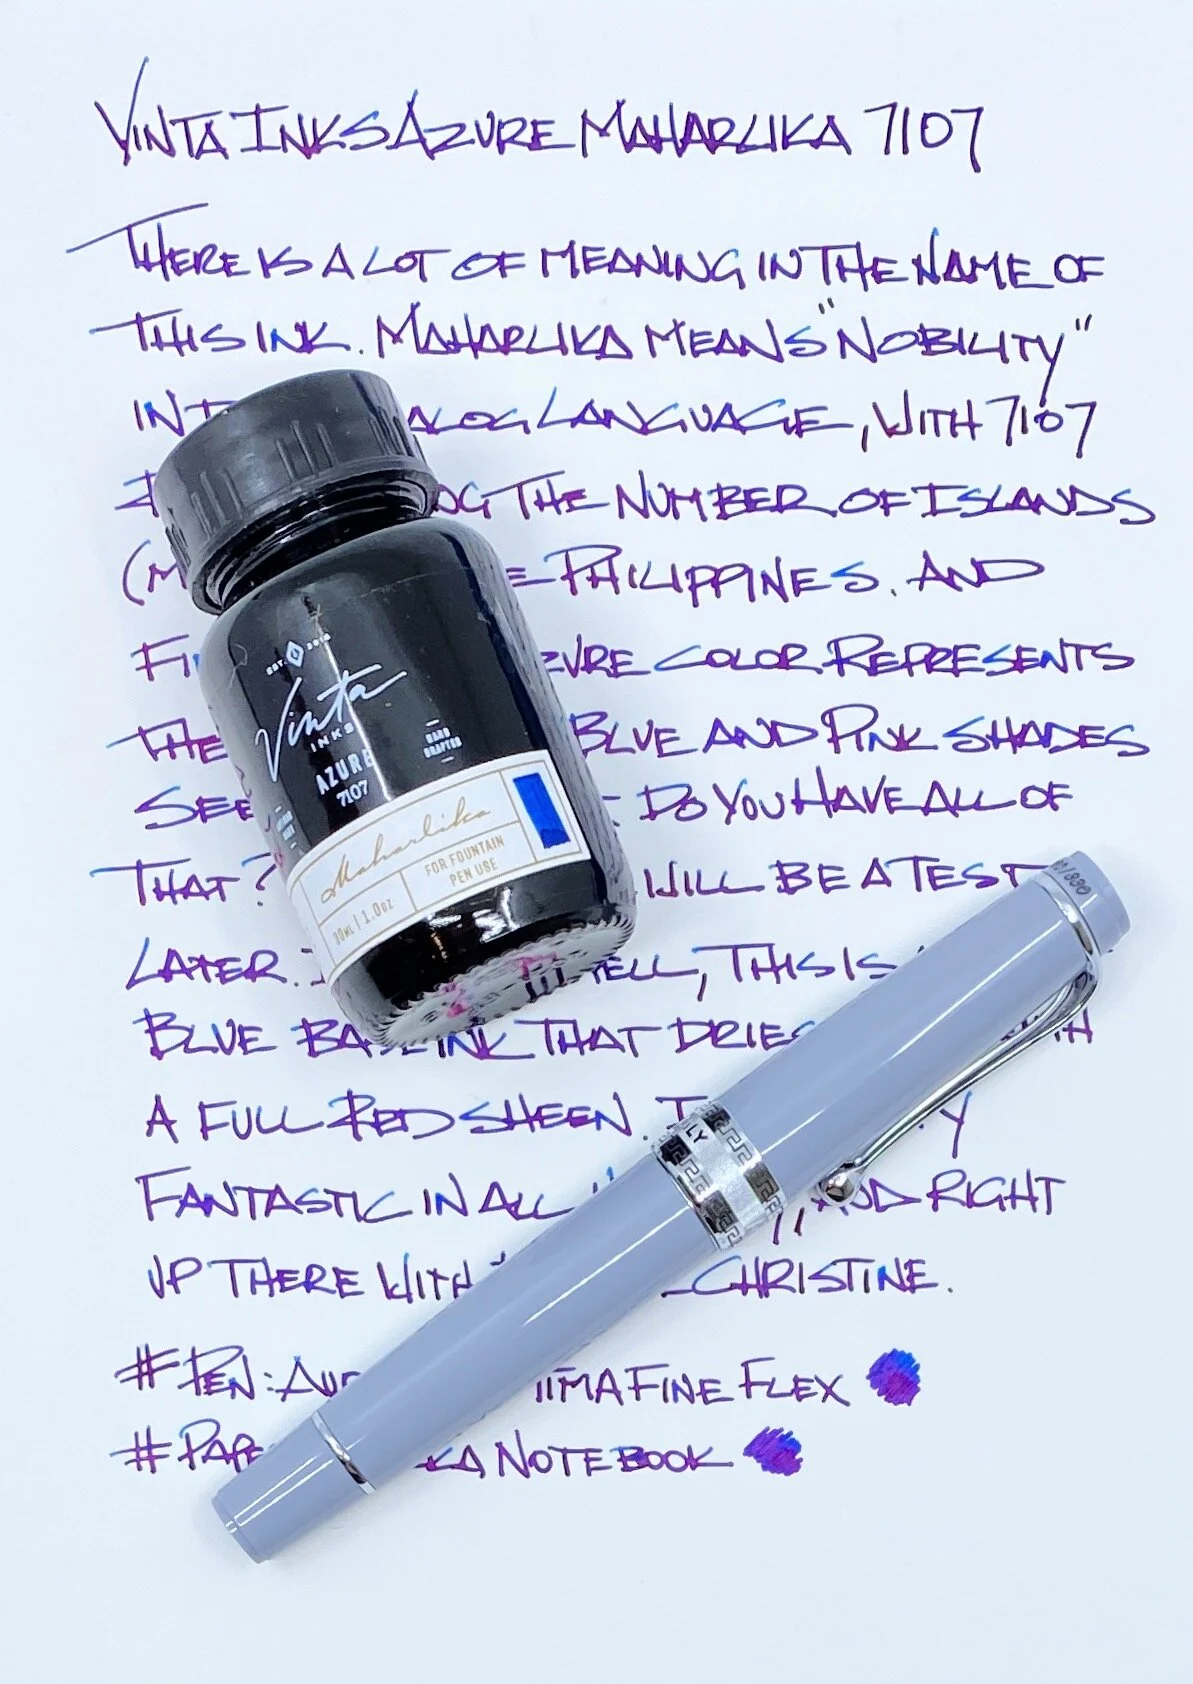 VINTA INKS AZURE MAHARLIKA 7107
THERE IS A LOT OF MEANING IN THE NAME OF
THIS INK. MAHARLIKA MEANS "NOBILITY"
IN LANGUAGE, WITH 7107
THE NUMBER OF ISLANDS
PHILIPPINES. AND
COLOR REPRESENTS
THE BLUE AND PINK SHADES
SEE DO YOU HAVE ALL OF
THAT? WILL BE A TEST
LATER. THIS IS
BLUE BASE INK THAT DRIES
A FULL RED SHEEN.
FANTASTIC IN ALL AND RIGHT
UP THERE WITH CHRISTINE.
#PEN: FINE FLEX
#PAPE NOTEBOOK
EST. 2018
Vinta
INKS
AZURE
7107
HAND
CRAFTED
Maharlika
FOR FOUNTAIN
PEN USE
30ML | 1.0oz
LY
/330